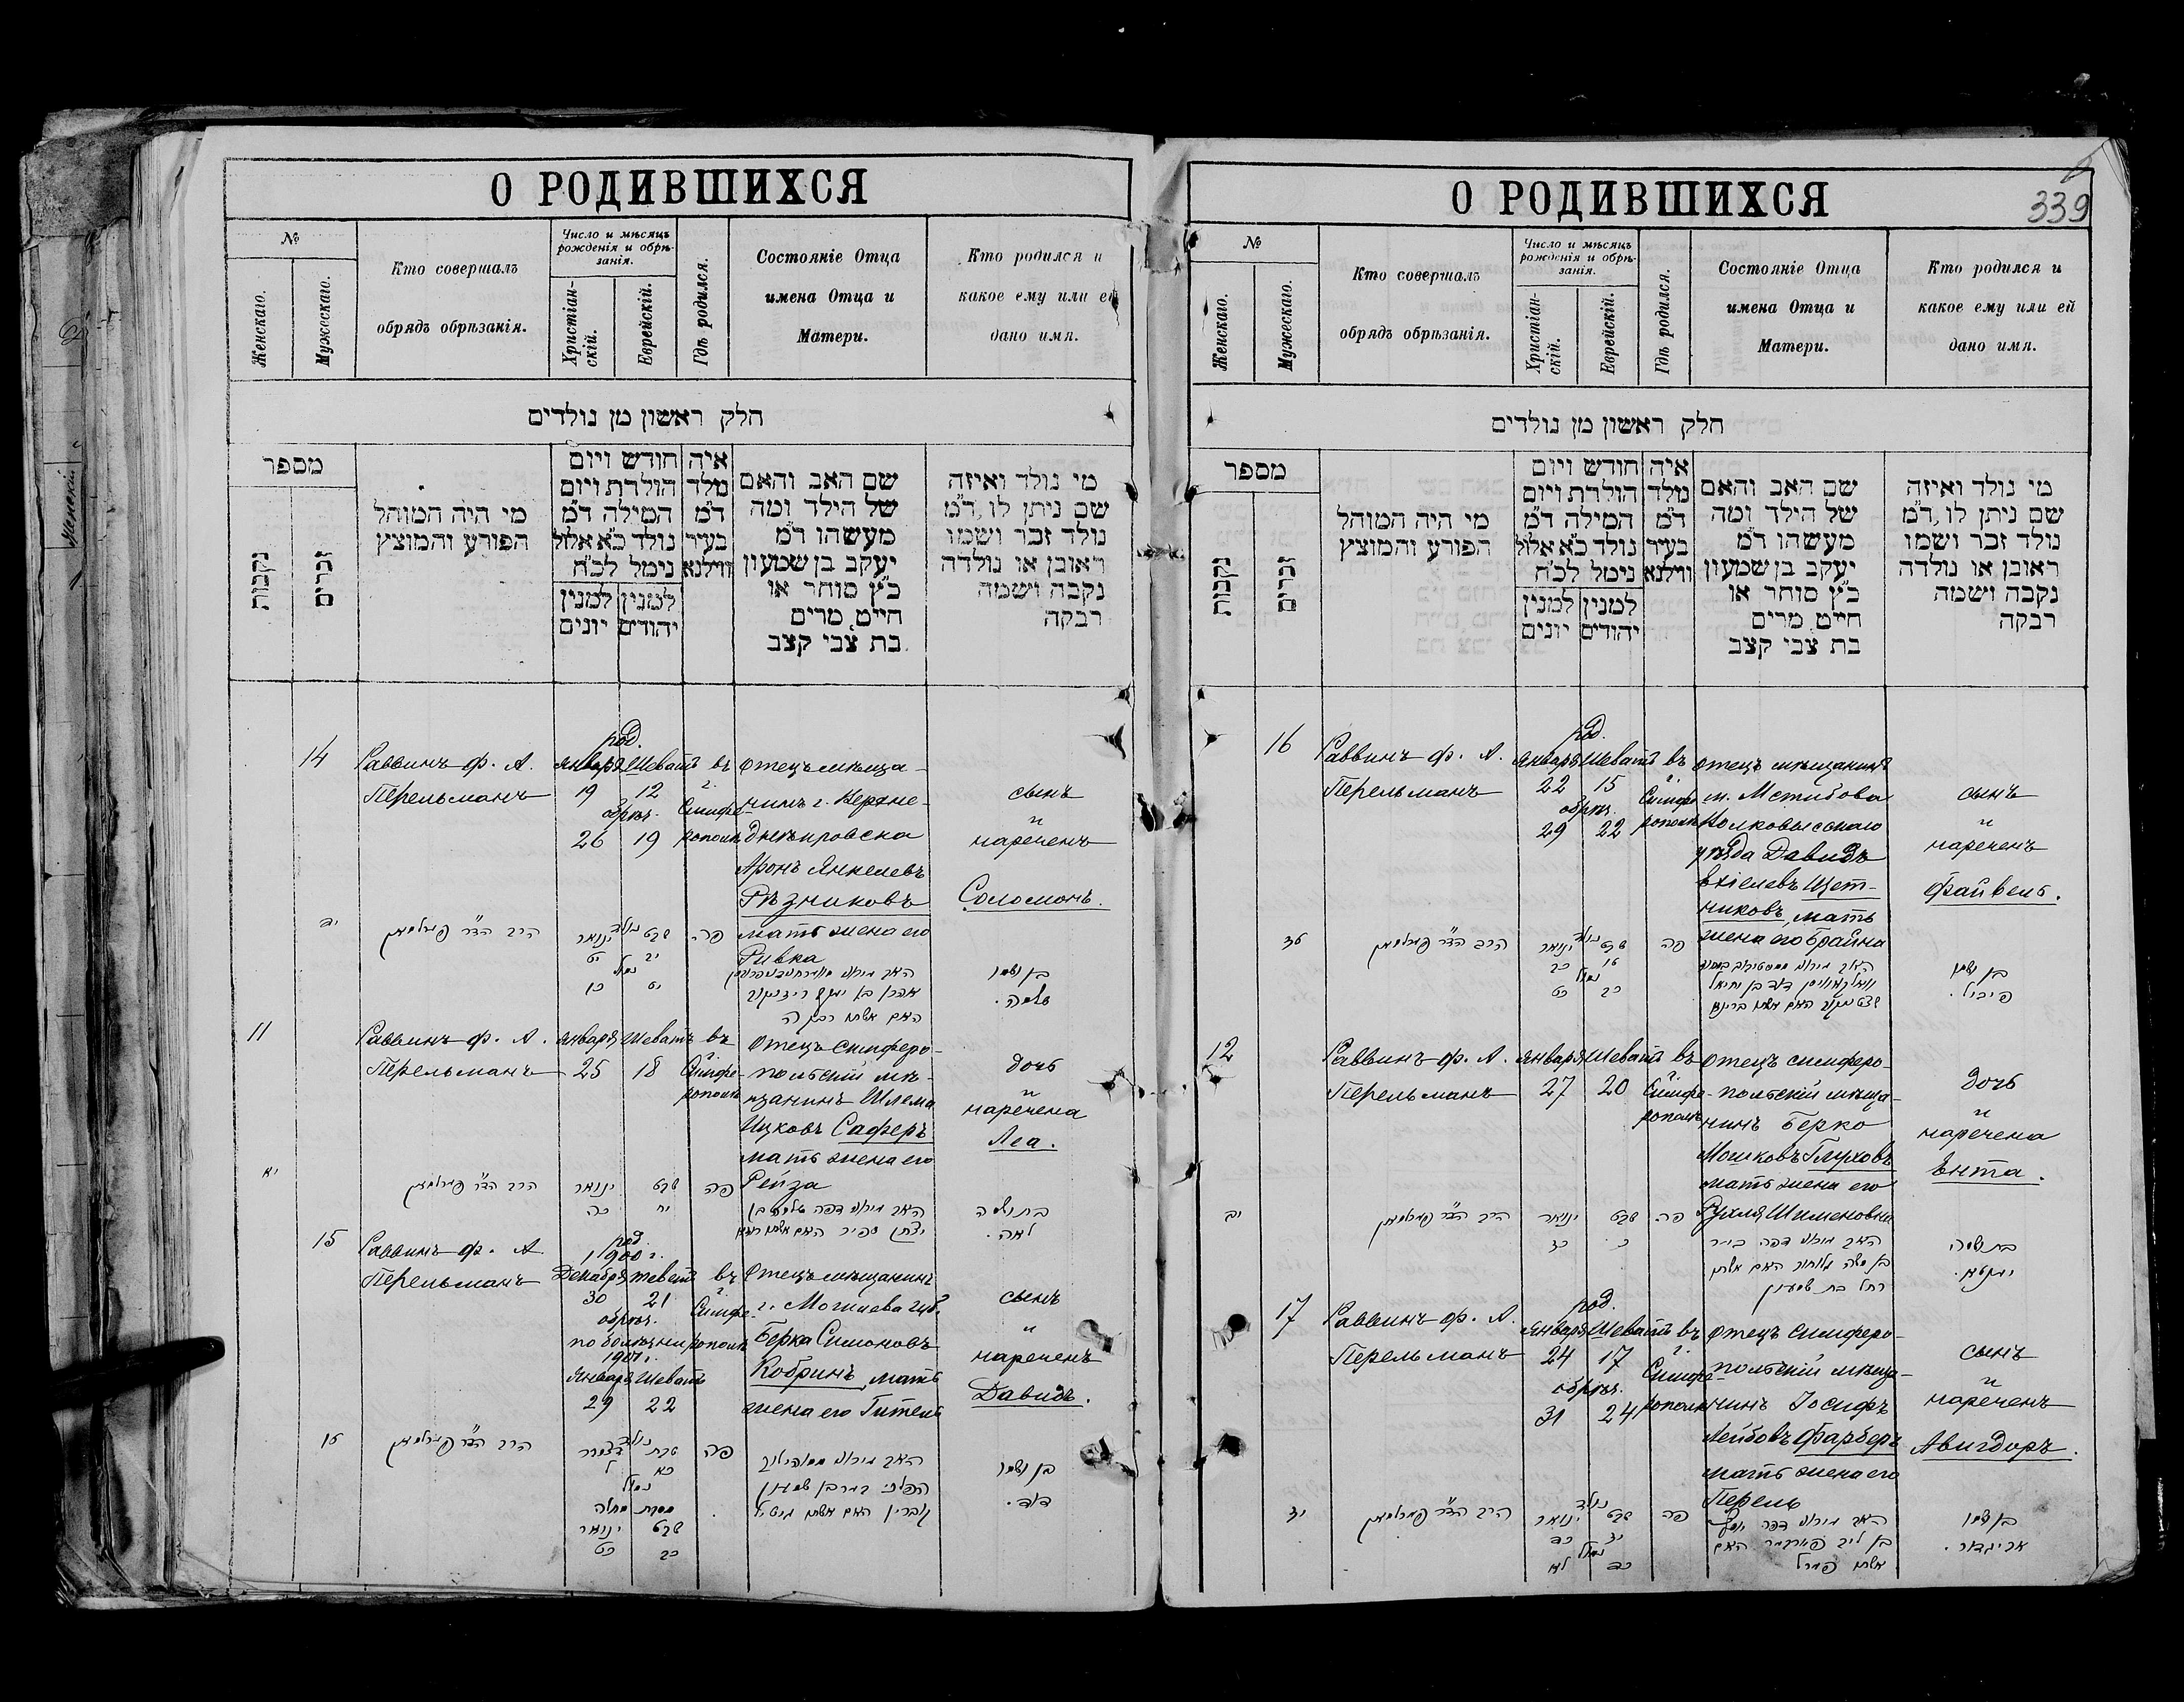 О РОДИВШИХСЯ
№
Женскаго.
Мужескаго.
Кто совершалъ
обрядъ обрѣзанія.
Число и мѣсяцъ
рожденія и обрѣ-
занія.
Христіан-
скій.
Еврейскій.
Гдѣ родился.
Состояніе Отца
имена Отца и
Матери.
Кто родился и
какое ему или ей
дано имя.
חלק ראשון מן נולדים
מספר
נקבות
זכרים
מי היה המוהל
הפורע והמוצץ
חודש ויום
הולדת ויום
המילה ד״מ
נולד כ״א אלול
נימל לכ״ח
למנין למנין
יהודים יונים
איה
נולד
ד״מ
בעיר
ווילנא
שם האב והאם
של הילד ומה
מעשהו ד״מ
יעקב בן שמעון
כ״ץ סוחר או
חייט, מרים
בת צבי קצב
מי נולד ואיזה
שם ניתן לו, ד״מ
נולד זכר ושמו
ראובן או נולדה
נקבה ושמה
רבקה
14
Раввинъ ф. А.
Перельманъ
род.
Января Шеватъ
19 12
обрѣз.
26 19
въ
г.
Симфе-
рополѣ
Отецъ мѣща-
нинъ г. Верхне-
днѣпровска
Аронъ Янкелевъ
Рѣзниковъ
мать жена его
Ривка
сынъ
и
нареченъ
Соломонъ.
הרב הד״ר פערלמאן
שבט ינואר
פה
בן ושמו
שלמה.
11
Раввинъ ф. А.
Перельманъ
Января Шеватъ
25 18
въ
г.
Симфе-
рополѣ
Отецъ симферо-
польскій мѣ-
щанинъ Шлема
Ицковъ Саферъ
мать жена его
Рейза
дочь
и
наречена
Леа.
יא
הרב הד״ר פערלמאן
שבט ינואר
יח כה
פה
בת ושמה
לאה.
15
Раввинъ ф. А.
Перельманъ
род.
1900 г.
Декабря Тевета
30 21
обрѣз.
по болѣзни
1901 г.
Января Шеватъ
29 22
въ
г.
Симфе-
рополѣ
Отецъ мѣщанинъ
г. Могилева губ.
Берка Симоновъ
Кобринъ, мать
жена его Гитель
сынъ
и
нареченъ
Давидъ.
הרב הד״ר פערלמאן
טבת דצמבר
כא ל
שבט ינואר
כב כט
פה
בן ושמו
דוד.
О РОДИВШИХСЯ
339
№
Женскаго.
Мужескаго.
Кто совершалъ
обрядъ обрѣзанія.
Число и мѣсяцъ
рожденія и обрѣ-
занія.
Христіан-
скій.
Еврейскій.
Гдѣ родился.
Состояніе Отца
имена Отца и
Матери.
Кто родился и
какое ему или ей
дано имя.
חלק ראשון מן נולדים
מספר
נקבות
זכרים
מי היה המוהל
הפורע והמוצץ
חודש ויום
הולדת ויום
המילה ד״מ
נולד כ״א אלול
נימל לכ״ח
למנין למנין
יהודים יונים
איה
נולד
ד״מ
בעיר
ווילנא
שם האב והאם
של הילד ומה
מעשהו ד״מ
יעקב בן שמעון
כ״ץ סוחר או
חייט, מרים
בת צבי קצב
מי נולד ואיזה
שם ניתן לו, ד״מ
נולד זכר ושמו
ראובן או נולדה
נקבה ושמה
רבקה
16
Раввинъ ф. А.
Перельманъ
род.
Января Шеватъ
22 15
обрѣз.
29 22
въ
г.
Симфе-
рополѣ
Отецъ мѣщанинъ
м. Мстибова
Волковысскаго
уѣзда Давидъ
Ехіелевъ Щет-
никовъ, мать
жена его Брайна
сынъ
и
нареченъ
Файвель.
הרב הד״ר פערלמאן
שבט ינואר
פה
בן ושמו
פיביל.
12
Раввинъ ф. А.
Перельманъ
Января Шеватъ
27 20
въ
г.
Симфе-
рополѣ
Отецъ симферо-
польскій мѣща-
нинъ Берко
Мошковъ Глуховъ
мать жена его
Рухля Шименовна
дочь
и
наречена
Ента.
יב
הרב הד״ר פערלמאן
שבט ינואר
כ כז
פה
בת ושמה
יענטא.
17
Раввинъ ф. А.
Перельманъ
род.
Января Шеватъ
24 17
обрѣз.
31 24
въ
г.
Симфе-
рополѣ
Отецъ симферо-
польскій мѣща-
нинъ Іосифъ
Лейбовъ Фарберъ
мать жена его
Перель
сынъ
и
нареченъ
Авигдоръ.
יז
הרב הד״ר פערלמאן
שבט ינואר
יז כד
כד לא
פה
בן ושמו
אביגדור.